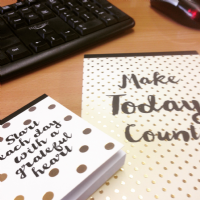 Start
each day
with a
grateful
heart
Make
Today
Count